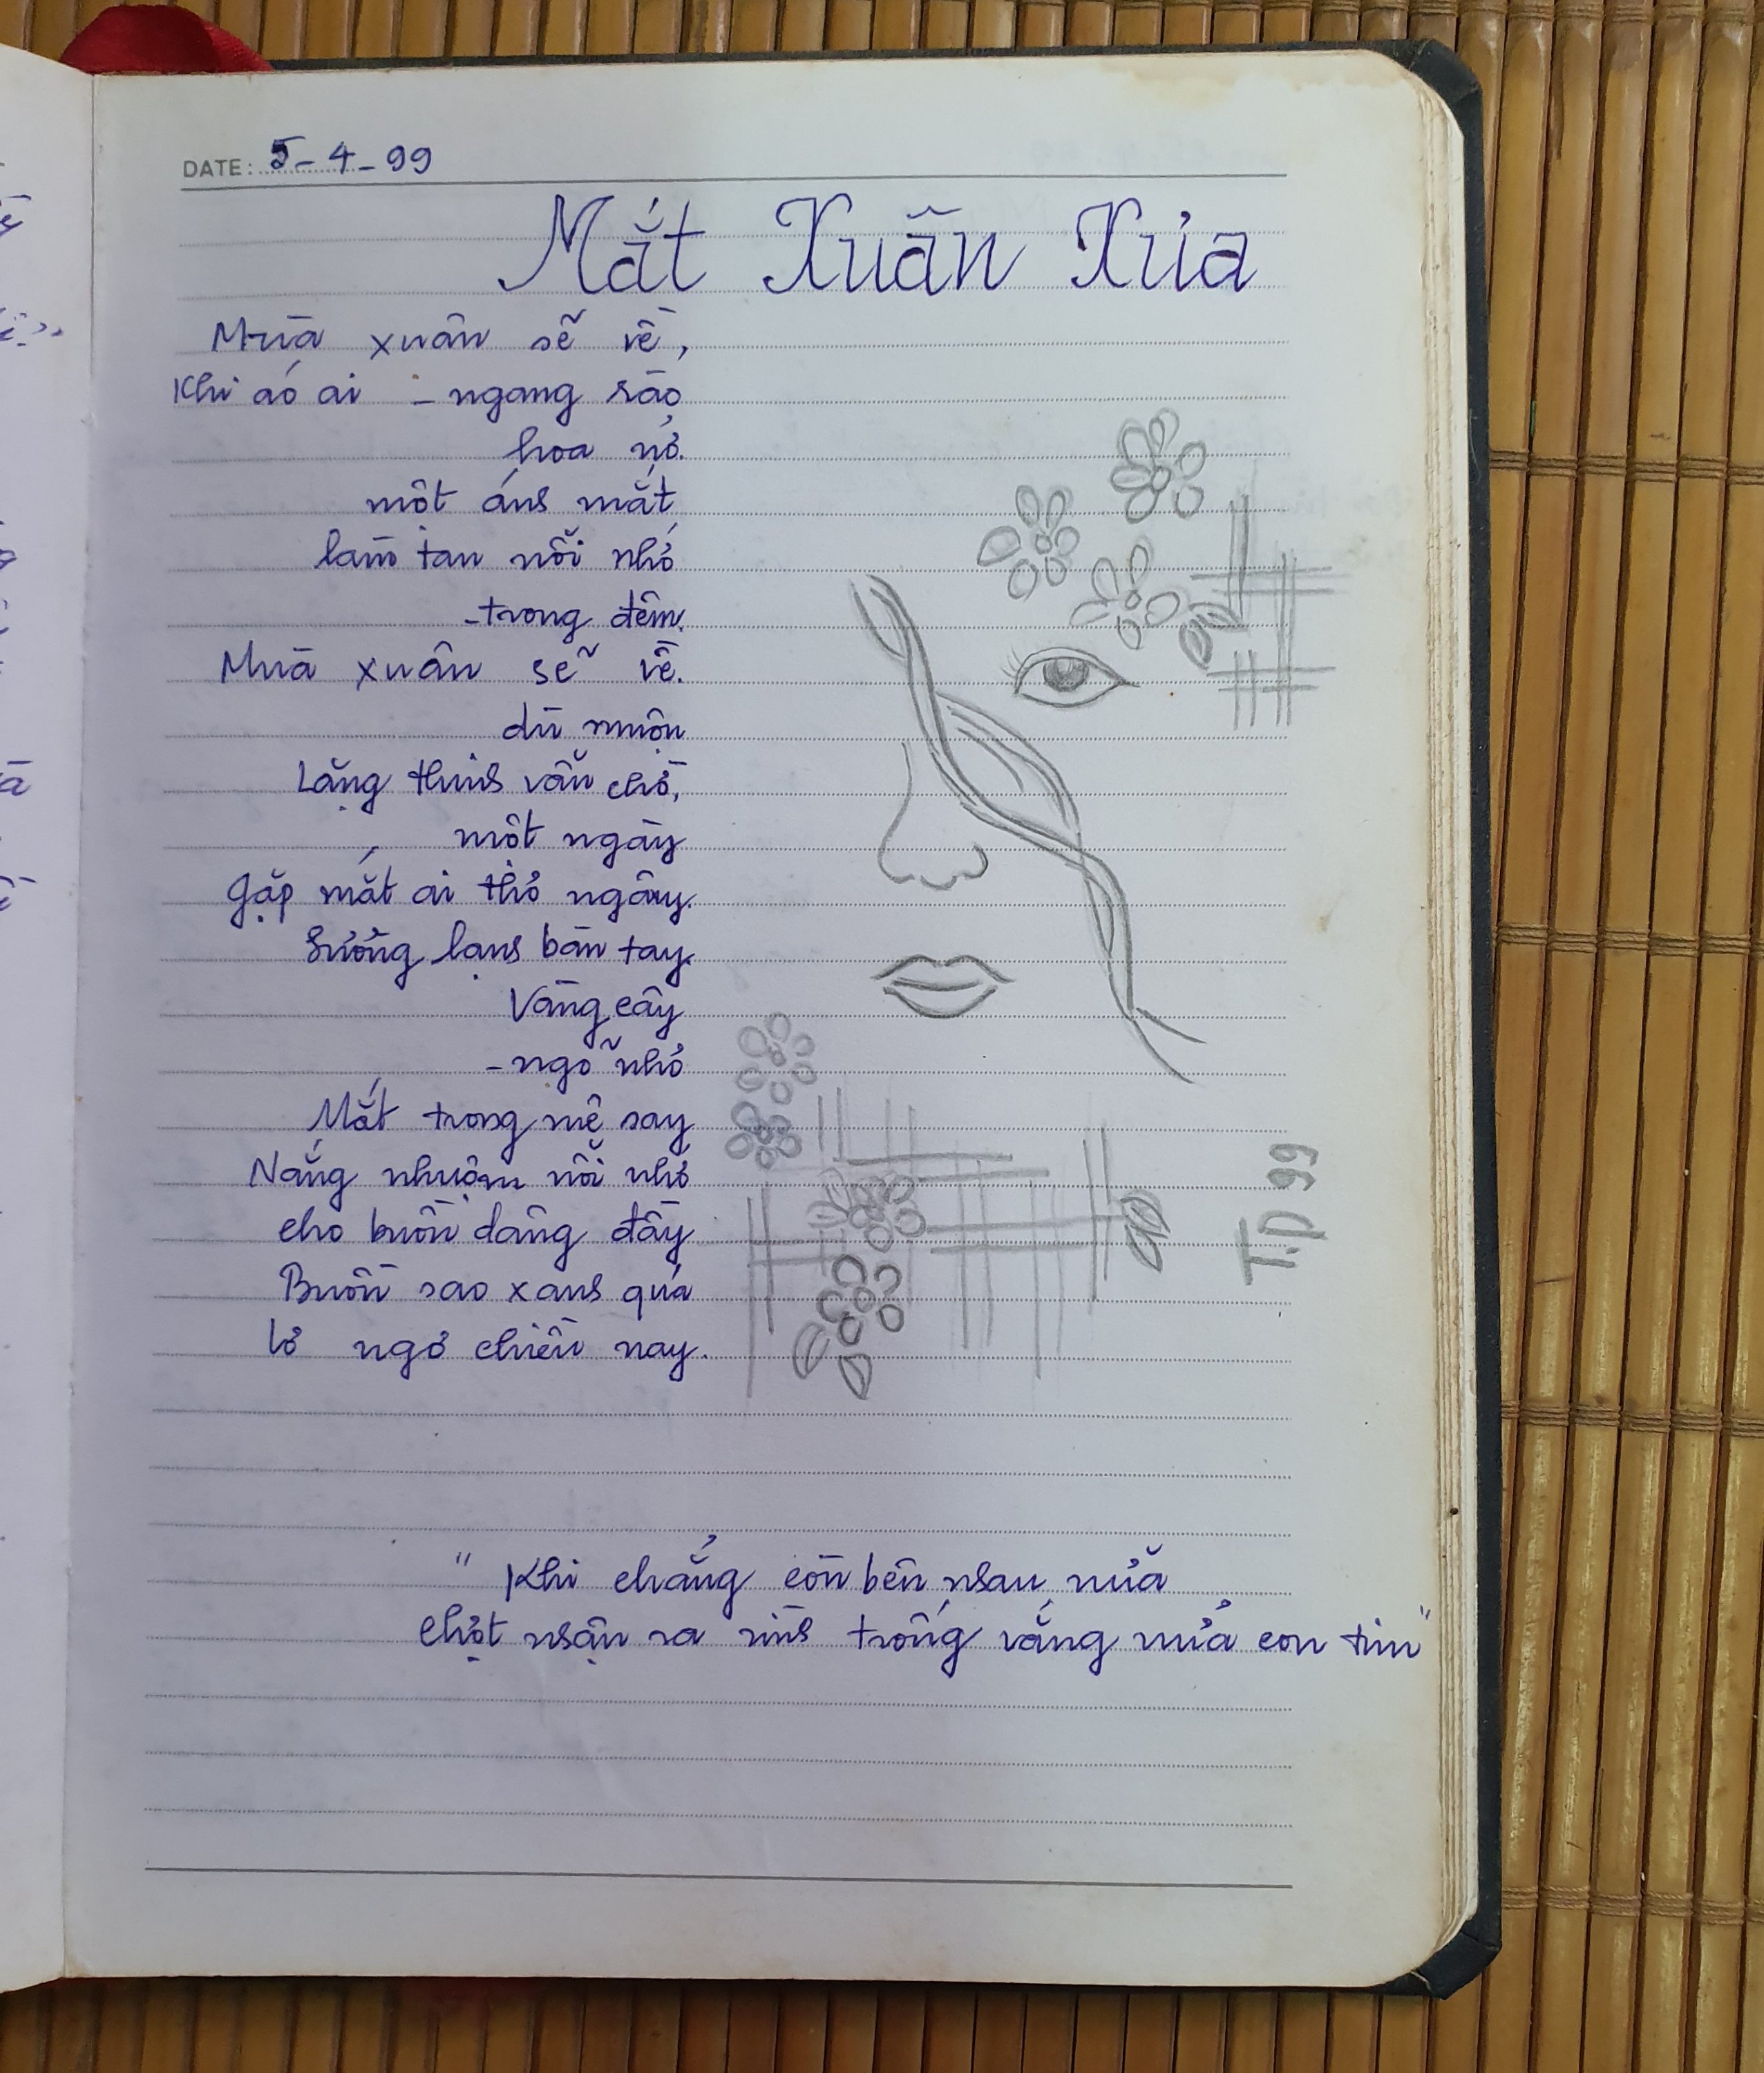 DATE: 5-4-99
Mắt Xuân Xưa
Mùa xuân sẽ về,
Khi áo ai - ngang rào
hoa nở.
một ánh mắt
làm tan nỗi nhớ
-trong đêm.
Mùa xuân sẽ về.
dù muộn
Lặng thinh vẫn chờ,
một ngày
Gặp mắt ai thơ ngây.
Sương lạnh bàn tay.
Vàng cây
-ngõ nhỏ
Mắt trong mê say
Nắng nhuộm nỗi nhớ
cho buồn dâng đầy
Buồn sao xanh quá
lơ ngơ chiều nay.
T.P 99
"Khi chẳng còn bên nhau nữa
Chợt nhận ra mình trống vắng nửa con tim"